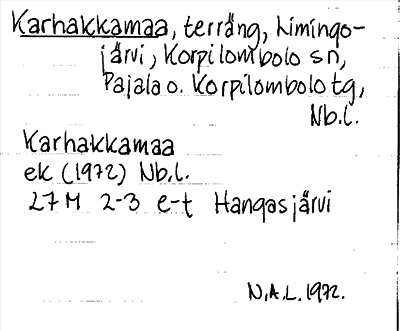 Karhakkamaa, terräng, Limingo-
järvi, Korpilombolo sn,
Pajala o. Korpilombolo tg,
Nb.l.
Karhakkamaa
ek (1972) Nb.l.
27M 2-3 e-t Hangasjärvi
N.A.L. 1972.